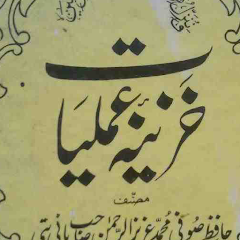 خزینۂ عملیات
مصنف
حافظ صوفی محمد عزیز الرحمٰن صاحب پانی پتی